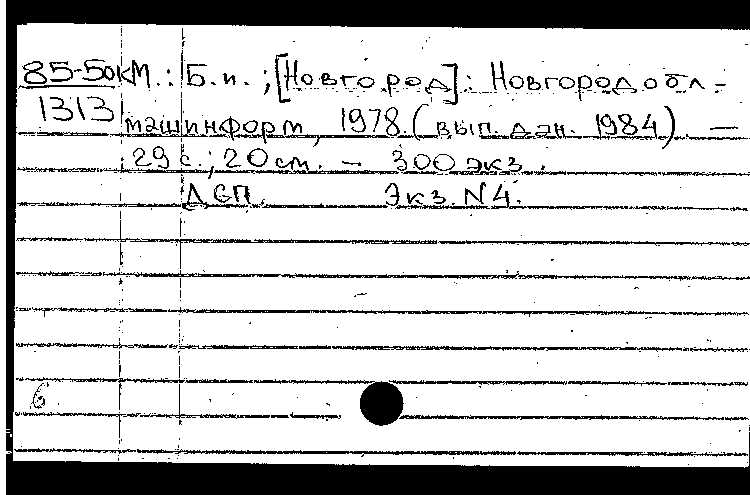 85-5окМ.: Б.и.; [Новгород]: Новгородобл-
1313 машинформ, 1978. (вып. дан. 1984). —
29 с.; 20 см. — 300 экз.
ДСП. Экз. N4.
6